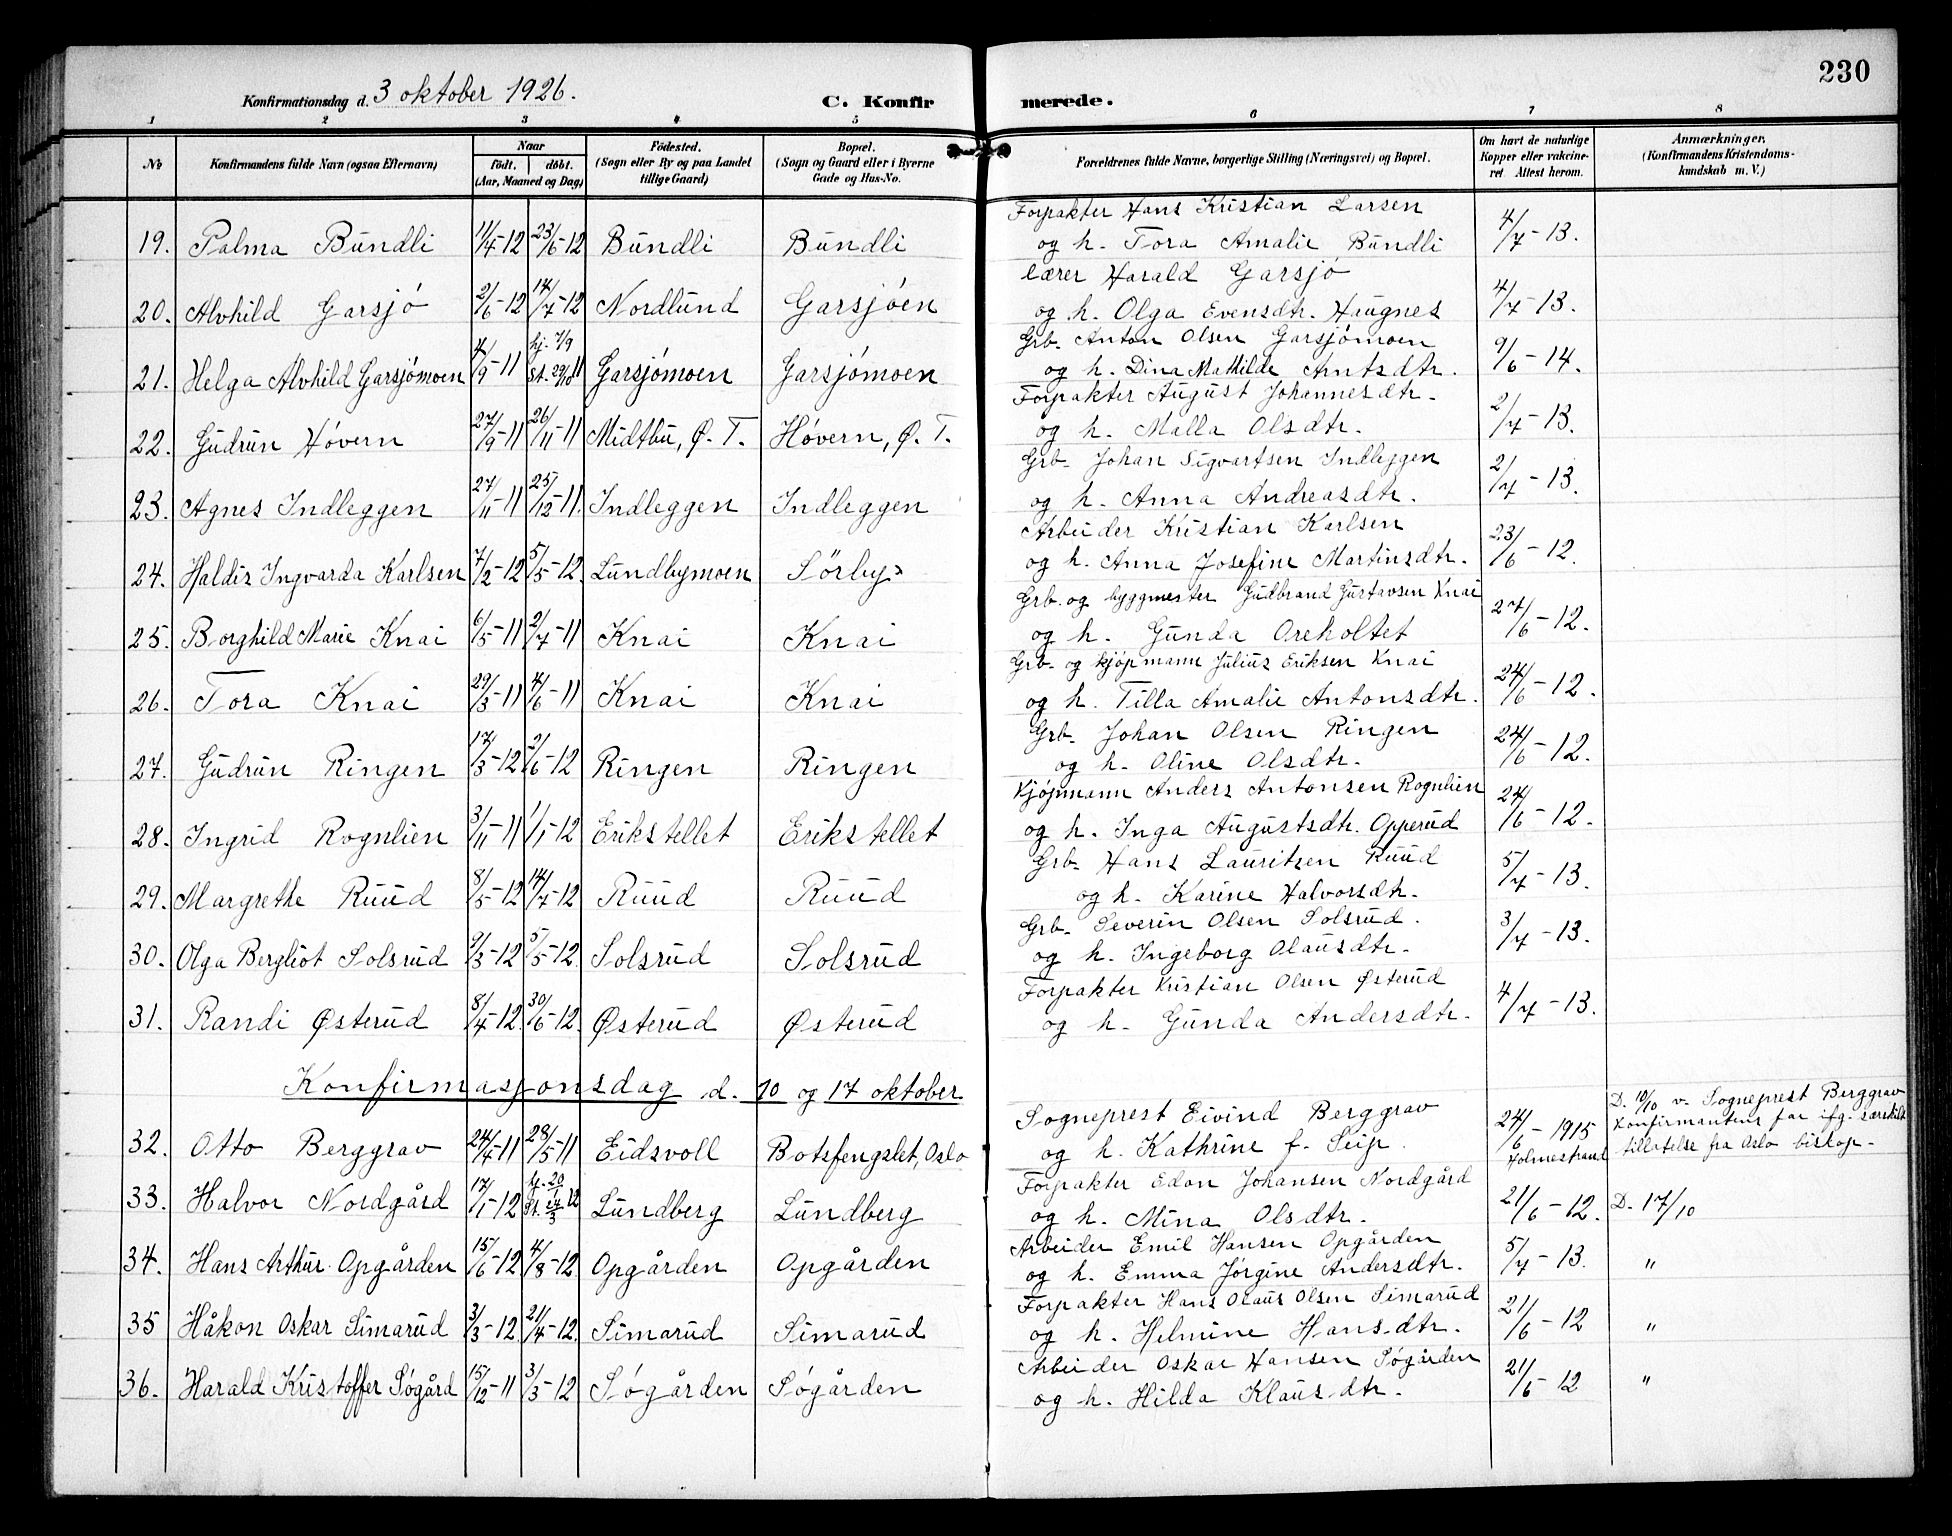 230
Konfirmationsdag d. 3 oktober 1926.
C. Konfirmerede.
1 2 3 4 5 6 7 8
No
Konfirmandens fulde Navn (ogsaa Efternavn)
Naar
født. døbt.
(Aar, Maaned og Dag)
Fødested.
(Sogn eller By og paa Landet
tillige Gaard)
Bopæl.
(Sogn og Gaard eller i Byerne
Gade og Hus-No.
Forældrenes fulde Navne, borgerlige Stilling (Næringsvei) og Bopæl.
Om havt de naturlige
Kopper eller vakcine-
ret. Attest herom.
Anmærkninger.
(Konfirmandens Kristendoms-
kundskab m. V.)
Forpakter Hans Kristian Larsen
19. Palma Bundli 11/4-12 23/6-12 Bundli Bundli og h. Tora Amalie Bundli 4/7-13.
lærer Harald Garsjø
20. Alvhild Garsjó 2/6-12 14/7-12 Nordlund Garsjóen og h. Olga Evensdtr. Haugnes 4/7-13.
Grb. Anton Olsen Garsjómoen
21. Helga Alvhild Garsjómoen 4/9-11 hj. 7/9 St. 29/10 11 Garsjómoen Garsjómoen og h. Dina Mathilde Antsdtr. 9/6-14.
Forpakter August Johannesdtr.
22. Gudrun Hóvern 27/9-11 26/11-11 Midtbu, Ø. T. Hóvern, Ø. T. og h. Malla Olsdtr. 2/7-13.
Grb. Johan Sigvartsen Indleggen
23. Agnes Indleggen 27/11-11 25/12-11. Indleggen Indleggen og h. Anna Andreasdtr. 2/7-13.
Arbeider Kristian Karlsen
24. Haldis Ingvarda Karlsen 7/2-12 5/5-12. Lundbymoen Sörby og h. Anna Josefine Martinsdtr. 23/6-12.
Grb. og byggmester Gudbrand Gustavsen Knai
25. Borghild Marie Knai 6/5-11 2/7-11 Knai Knai og h. Gunda Oreholtet 27/6-12.
Grb. og kjópmann Julius Eriksen Knai
26. Tora Knai 29/3-11 4/6-11 Knai Knai og h. Tilla Amalie Antonsdtr. 24/6-12.
Grb. Johan Olsen Ringen
27. Gudrun Ringen 17/3-12 2/6-12 Ringen Ringen og h. Oline Olsdtr. 24/6-12.
Kjópmann Anders Antonsen Rognlien
28. Ingrid Rognlien 3/11-11 1/1-12 Erikstellet Erikstellet og h. Inga Augustsdtr. Opperud 24/6-12.
Grb. Hans Lauritsen Ruud
29. Margrethe Ruud 8/5-12 14/7-12 Ruud Ruud og h. Karine Halvorsdtr. 5/7-13.
Grb. Severin Olsen Solsrud.
30. Olga Bergliot Solsrud 9/3-12 5/5-12. Solsrud Solsrud og h. Ingeborg Olausdtr. 3/7-13.
Forpakter Kristian Olsen Østerud
31. Randi Østerud 8/4-12. 30/6-12. Østerud Østerud og h. Gunda Andersdtr. 4/7-13.
Konfirmasjonsdag d. 10 og 17 oktober
Sogneprest Eivind Berggrav
32. Otto Berggrav 24/4-11 28/5-11 Eidsvoll Botsfengslet, Oslo og h. Kathrine f. Seip. 24/6-1915 Holmestrand D. 10/10 v. Sogneprest Berggrav
Konfirmantens far ifg. særskilt
tillatelse fra Oslo biskop.
Forpakter Edon Johansen Nordgård
33. Halvor Nordgård 17/1-12 hj. 20/1 St. 24/3 12 Lundberg Lundberg og h. Mina Olsdtr. 21/6-12. D. 17/10
Arbeider Emil Hansen Opgården
34. Hans Arthur Opgården 15/6-12 4/8-12. Opgården Opgården og h. Emma Jórgine Andersdtr. 5/7-13. "
Forpakter Hans Olaus Olsen Simarud
35 Håkon Oskar Simarud 3/3-12. 21/4-12. Simarud Simarud og h. Helmine Hansdtr. 21/6-12 "
Arbeider Oskar Hansen Sógården
36. Harald Kristoffer Sógård 15/12-11 3/3-12 Sógården Sógården og h. Hilda Klausdtr. 21/6-12 "